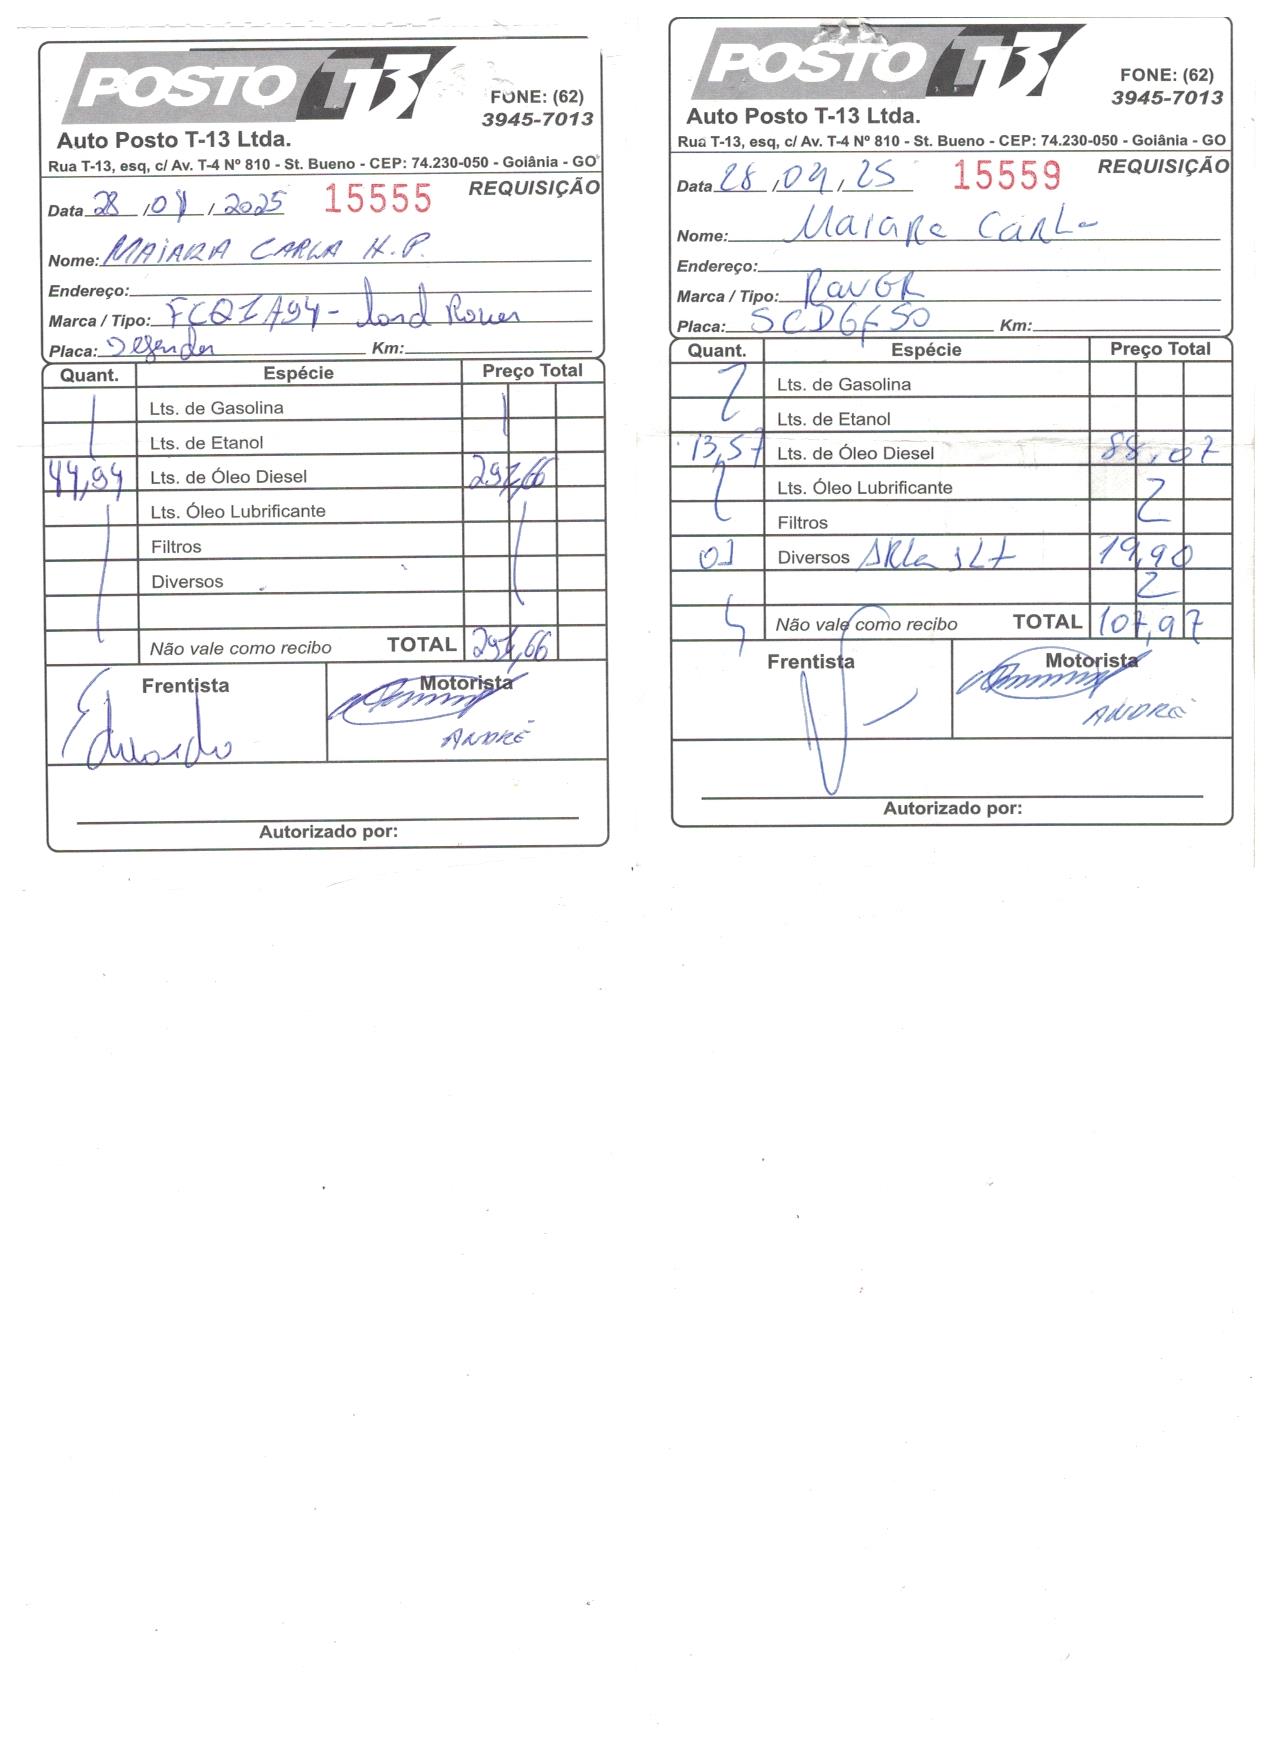 POSTO T13
FONE: (62)
3945-7013
Auto Posto T-13 Ltda.
Rua T-13, esq, c/ Av. T-4 Nº 810 - St. Bueno - CEP: 74.230-050 - Goiânia - GO
REQUISIÇÃO
Data 28 / 04 / 2025 15555
Nome: MAIARA CARLA H.P.
Endereço:
Marca / Tipo: FCQ1A94 - Land Rover
Placa: Defender Km:
Quant. Espécie Preço Total
Lts. de Gasolina
Lts. de Etanol
44,94 Lts. de Óleo Diesel 291,66
Lts. Óleo Lubrificante
Filtros
Diversos
Não vale como recibo TOTAL 291,66
Frentista Motorista
Eduardo ANDRÉ
Autorizado por:
POSTO T13
FONE: (62)
3945-7013
Auto Posto T-13 Ltda.
Rua T-13, esq, c/ Av. T-4 Nº 810 - St. Bueno - CEP: 74.230-050 - Goiânia - GO
REQUISIÇÃO
Data 28 / 04 / 25 15559
Nome: Maiara Carla
Endereço:
Marca / Tipo:
Placa: SCD6F50 Km:
Quant. Espécie Preço Total
Lts. de Gasolina
Lts. de Etanol
13,57 Lts. de Óleo Diesel 88,07
Lts. Óleo Lubrificante
Filtros
01 Diversos ARLa 1Lt 19,90
Não vale como recibo TOTAL 107,97
Frentista Motorista
ANDRÉ
Autorizado por: